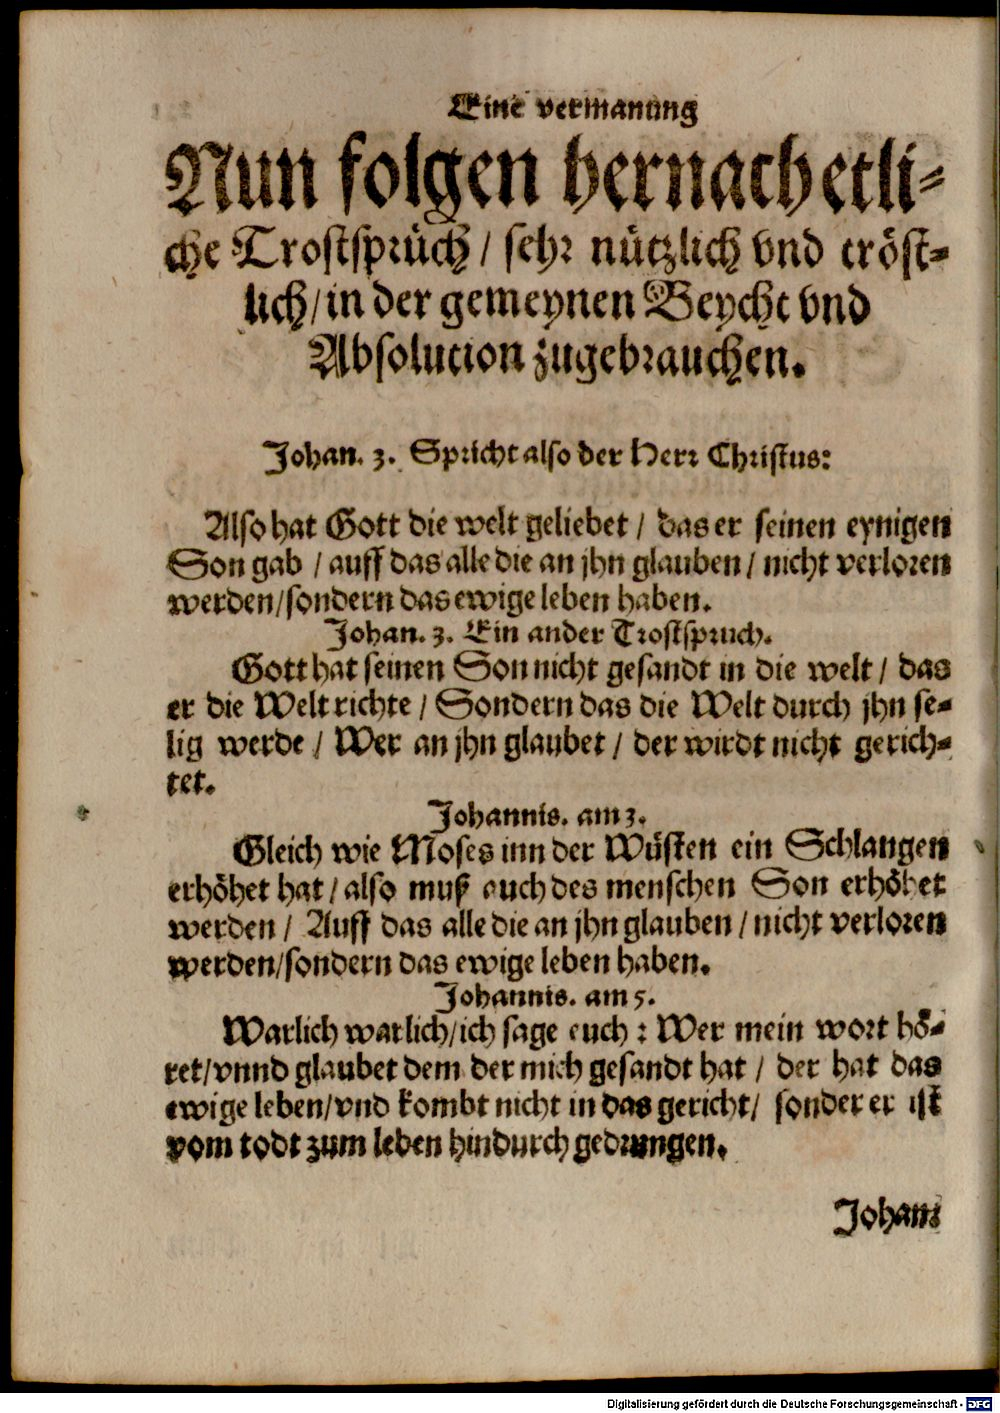 Eine vermanung
Nun folgen hernach etli-
che Trostsprüch / sehr nützlich vnd tröst-
lich / in der gemeynen Beycht vnd
Absolution zugebrauchen.
Johan. 3. Spricht also der Herr Christus:
Also hat Gott die welt geliebet / das er seinen eynigen
Son gab / auff das alle die an jhn glauben / nicht verloren
werden / sondern das ewige leben haben.
Johan. 3. Ein ander Trostspruch.
Gott hat seinen Son nicht gesandt in die welt / das
er die Welt richte / Sondern das die Welt durch jhn se-
lig werde / Wer an jhn glaubet / der wirdt nicht gerich-
tet.
Johannis. am 3.
Gleich wie Moses inn der Wüsten ein Schlangen
erhöhet hat / also muß auch des menschen Son erhöhet
werden / Auff das alle die an jhn glauben / nicht verloren
werden / sondern das ewige leben haben.
Johannis. am 5.
Warlich warlich / ich sage euch : Wer mein wort hö-
ret / vnnd glaubet dem der mich gesandt hat / der hat das
ewige leben / vnd kombt nicht in das gericht / sonder er ist
vom todt zum leben hindurch gedrungen.
Johan:
Digitalisierung gefördert durch die Deutsche Forschungsgemeinschaft - DFG